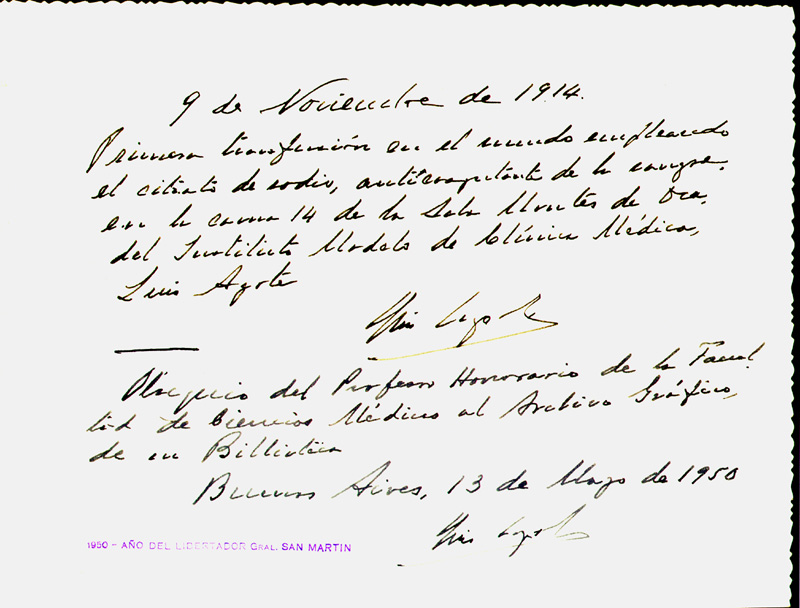 9 de Noviembre de 1914.
Primera transfusión en el mundo empleando
el citrato de sodio, anticoagulante de la sangre,
en la cama 14 de la Sala Montes de Oca,
del Instituto Modelo de Clínica Médica,
Luis Agote
Obsequio del Profesor Honorario de la Facul
tad de Ciencias Médicas al Archivo Gráfico,
de su Biblioteca
Buenos Aires, 13 de Mayo de 1950
1950 - AÑO DEL LIBERTADOR GRAL. SAN MARTIN